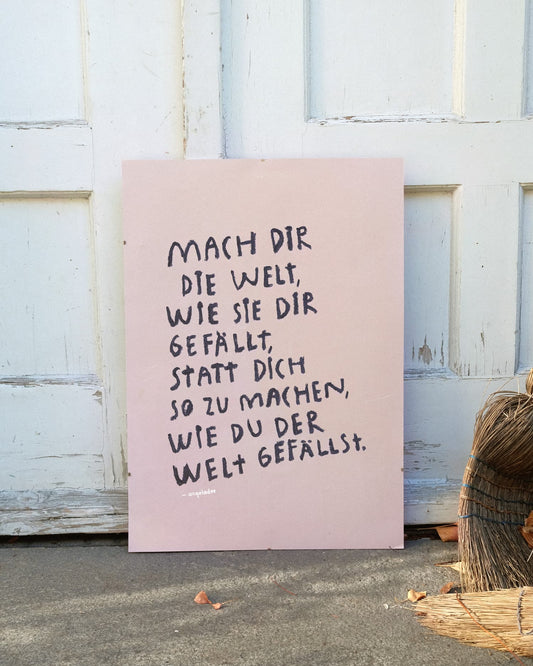 MACH DIR
DIE WELT,
WIE SIE DIR
GEFÄLLT,
STATT DICH
SO ZU MACHEN,
WIE DU DER
WELT GEFÄLLST.